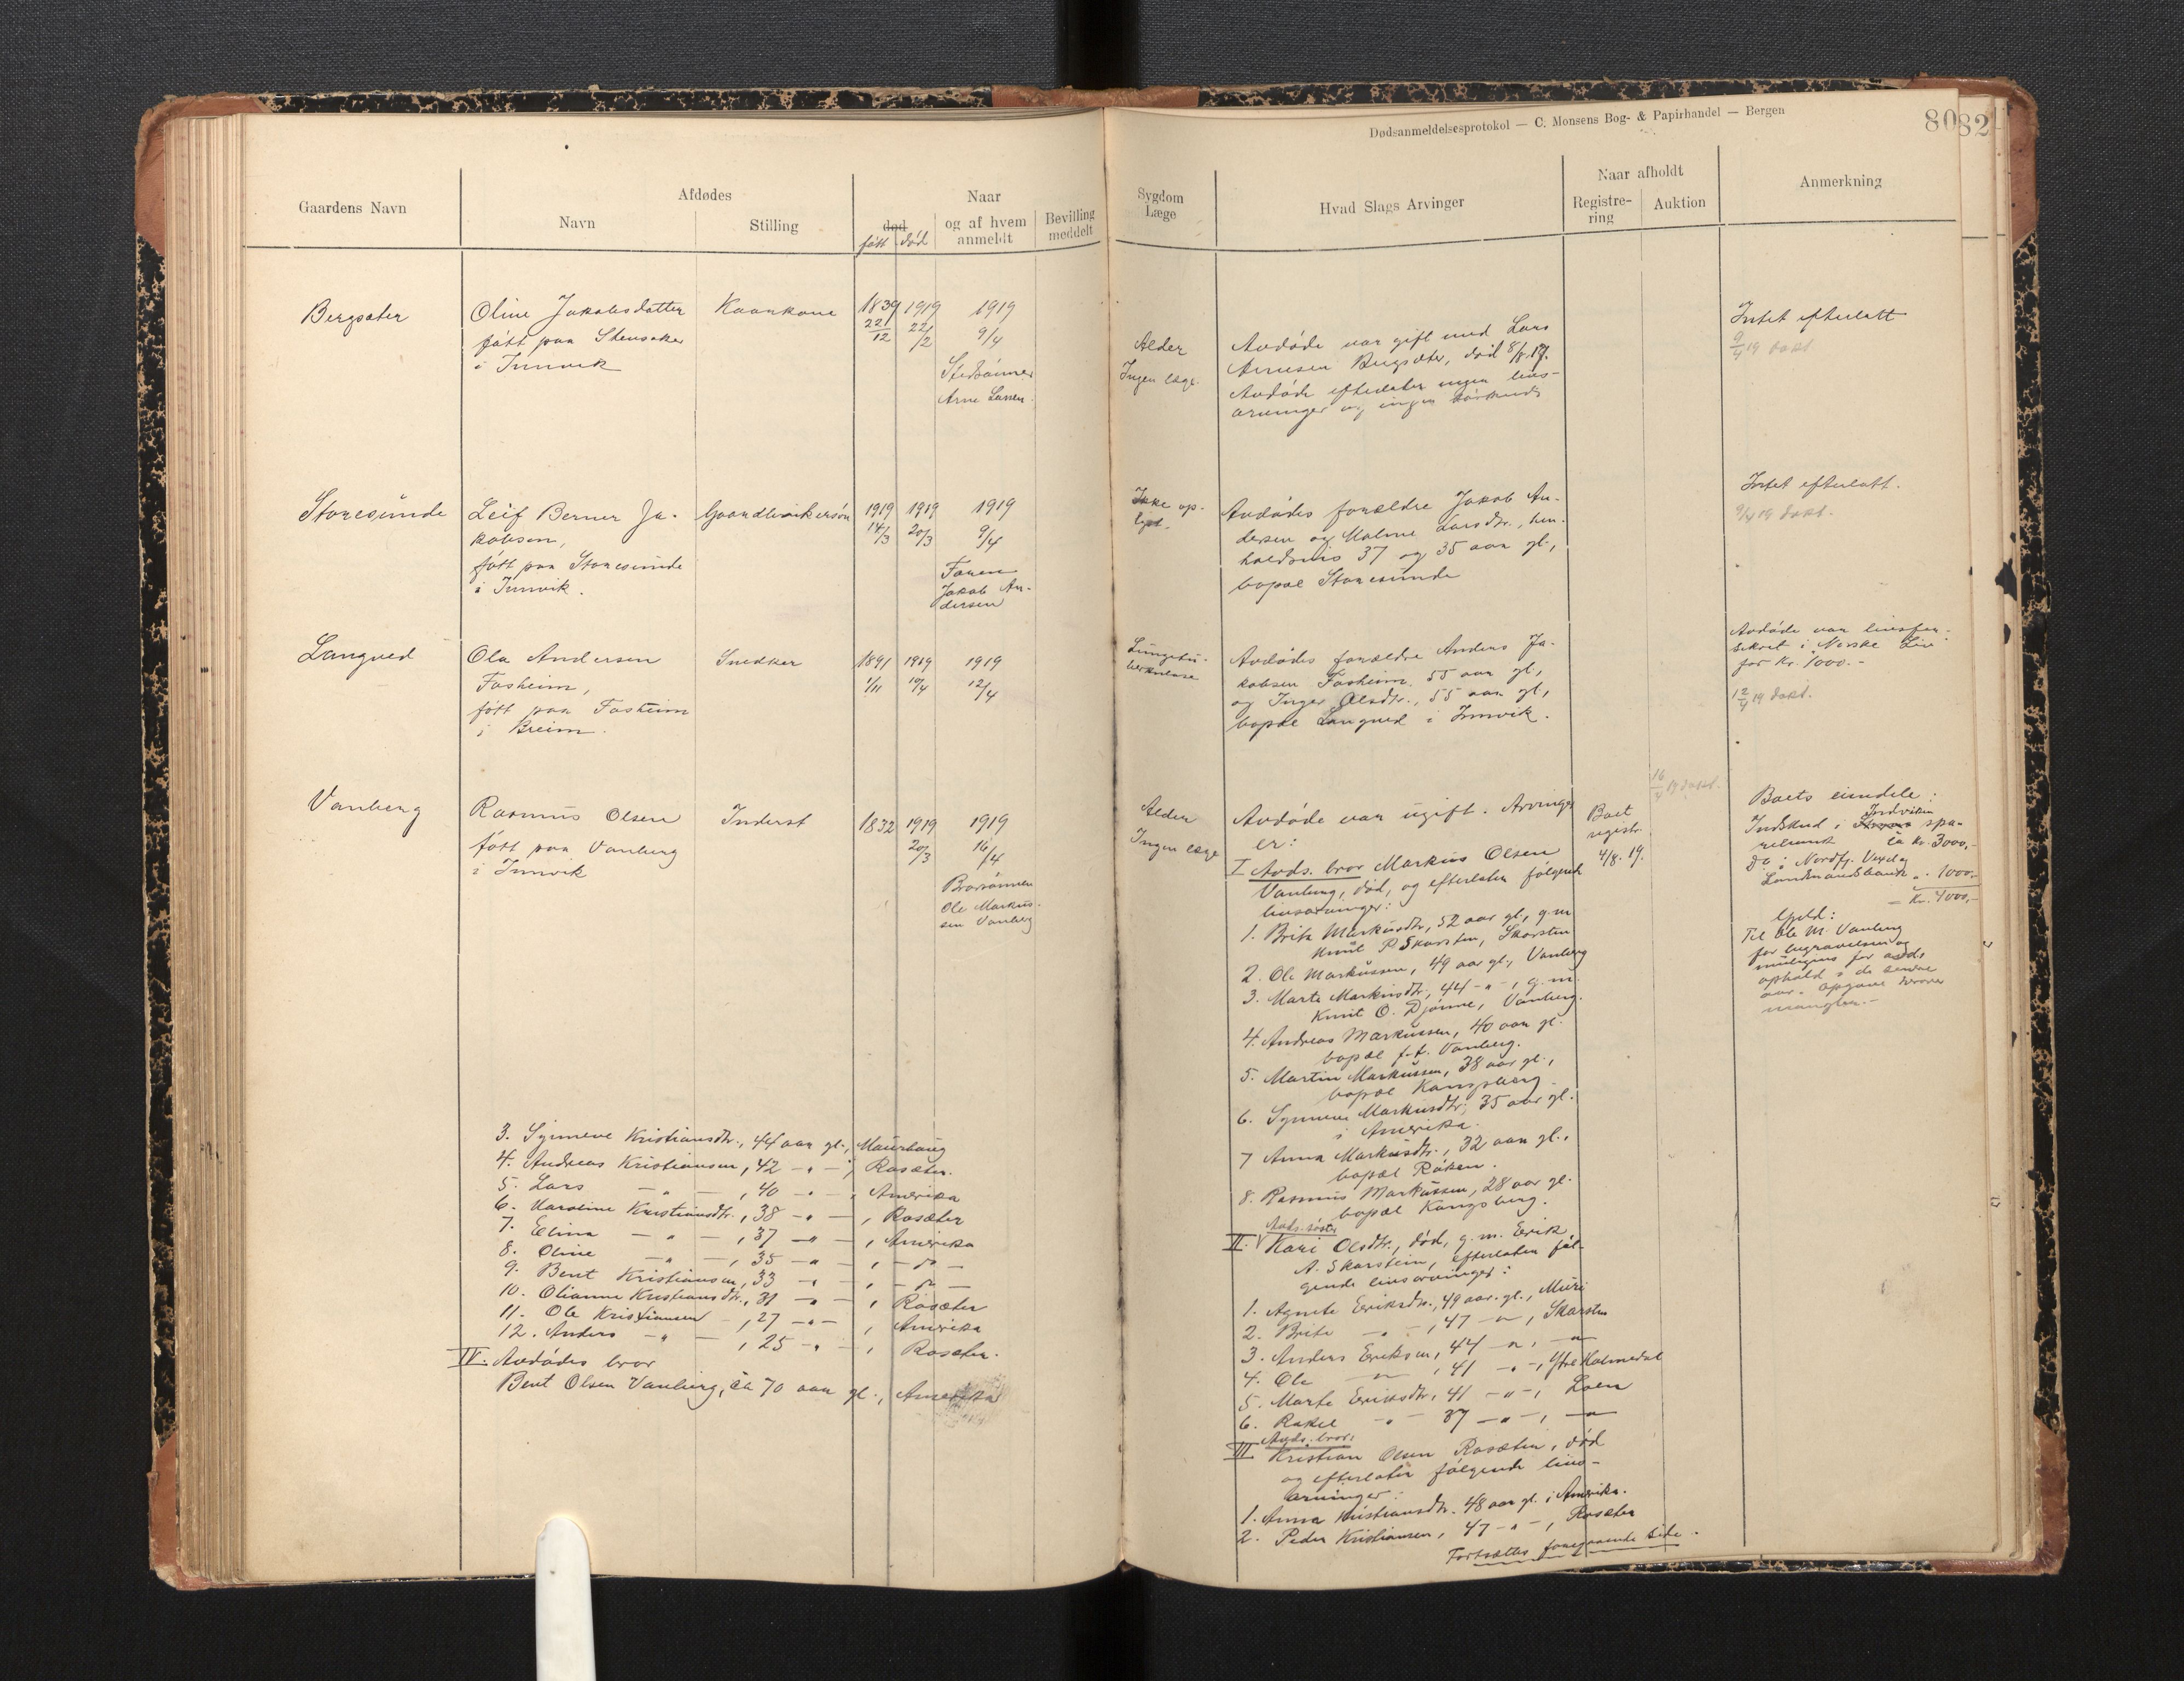 Dødsanmeldelsesprotokol — C. Monsens Bog- & Papirhandel — Bergen
80
82
Gaardens Navn
Afdødes
Navn
Stilling
Naar
død
født død
og af hvem
anmeldt
Bevilling
meddelt
Sygdom
Læge
Hvad Slags Arvinger
Naar afholdt
Registre-
ring
Auktion
Anmerkning
Bergsæter
Oline Jakobsdatter
født paa Stensaker
i Innvik
Kaarkone
1839
22/12
1919
22/2
1919
9/4
Stedsønnen
Arne Larsen
Alder
Ingen læge
Avdøde var gift med Lars
Arnesen Bergsæter, død 8/8.17.
Avdøde efterlater ingen livs-
arvinger og ingen
Intet efterlatt
9/4 19 dokt
Storesunde
Leif Berner Ja-
kobsen,
født paa Storesunde
i Innvik.
Gaardbrukersøn
1919
14/3
1919
20/3
1919
9/4
Faren
Jakob An-
dersen
Ikke op-
lyst.
Avdødes forældre Jakob An-
dersen og Malene Larsdtr., hen-
holdsvis 37 og 35 aar gl.,
bopæl Storesunde
Intet efterlatt.
9/4 19 dokt.
Langved
Ola Andersen
Fosheim,
født paa Fosheim
i Breim.
Snedker
1891
1/11
1919
10/4
1919
12/4
Lungetu-
berkulose
Avdødes forældre Anders Ja-
kobsen Fosheim, 55 aar gl,
og Inger Olsdtr., 55 aar gl,
bopæl Langved i Innvik.
Avdøde var livsfor-
sikret i Norske Liv
for Kr. 1000.-
12/4 19 dokt.
Vanberg
Rasmus Olsen
født paa Vanberg
i Innvik
Inderst
1832
1919
20/3
1919
16/4
Brorsønnen
Ole Markus-
sen Vanberg
Alder
Ingen læge
Avdøde var ugift. Arvinger
er:
I Avds. bror Markus Olsen
Vanberg, død, og efterlater følgende
livsarvinger:
1. Brite Markusdtr, 52 aar gl., g.m
Knut P. Skarsten, Skarsten
2. Ole Markussen, 49 aar gl., Vanberg
3. Marte Markusdtr., 44 - " -, g.m.
Knut O. Djønne, Vanberg.
4. Andreas Markussen, 40 aar gl.
bopæl f.t. Vanberg.
5. Martin Markussen, 38 aar gl.,
bopæl Kongsberg
6. Synneve Markusdtr., 35 aar gl.
i Amerika.
7 Anna Markusdtr., 32 aar gl.,
bopæl Røken.
8. Rasmus Markussen, 28 aar gl.
bopæl Kongsberg.
Avds. søster
II. Kari Olsdtr., død, g.m. Erik
A. Skarstein, efterlater føl-
gende livsarvinger:
1. Agnete Eriksdtr., 49 aar gl., Muri
2. Brite - " -, 47 - " -, Skarsten
3. Anders Eriksen, 44 - " -, - " -
4. Ole - " -, 41 - " -, Ytre Holmedal
5. Marte Eriksdtr, 41 - " -, Loen
6. Rakel - " - 37 - " -, - " -
Avds. bror:
III Kristian Olsen Rosæter, død
og efterlater følgende livs-
arvinger:
1. Anna Kristiansdtr. 48 aar gl. i Amerika.
2. Peder Kristiansen, 47 - " -, Rosæter
Fortsættes foregaaende side.
16/4 19 dokt.
Boet
registr.
4/8. 19.
Boets eiendele:
Indskud i Indviken spa-
rebank ca Kr. 3000,-
Do i Nordfj. Vexel og
Landmandsbank " 1000,-
= Kr. 4000,-
Gjeld:
Til Ole M. Vanberg
for begravelsen og
muligens for avds
ophold i de senere
aar. Opgave herover
mangler.-
3. Synneve Kristiansdtr., 44 aar gl., Maurhaug
4. Andreas Kristiansen, 42 - " -, Rosæter.
5. Lars - " -, 40 - " -, Amerika
6. Karoline Kristiansdtr., 38 - " -, Rosæter
7. Elina - " -, 37 - " -, Amerika
8. Oline - " -, 35 - " -, - " -
9. Bent Kristiansen, 33 - " -, - " -
10. Olianna Kristiansdtr., 31 - " -, Rosæter
11. Ole Kristiansen, 27 - " -, Amerika
12. Anders - " -, 25 - " -, Rosæter.
IV. Avdødes bror
Bent Olsen Vanberg, ca 70 aar gl., Amerika